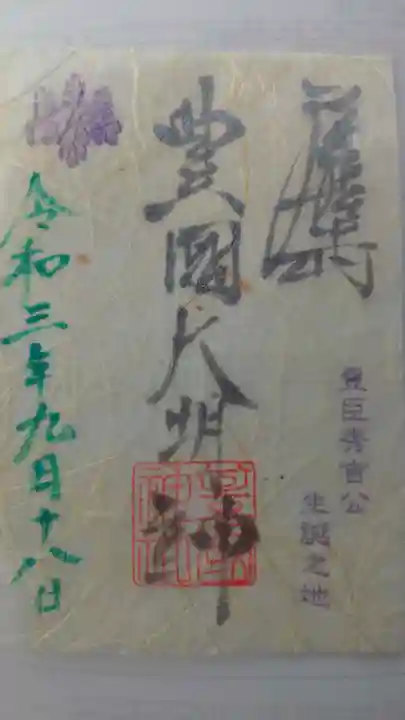 豊臣秀吉公
生誕之地
豊國大明神
令和三年九月十八日